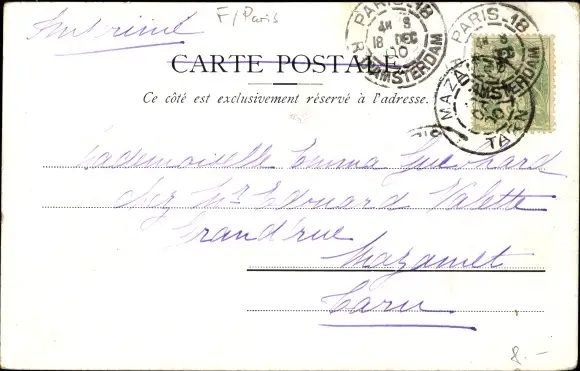 Imprimé
F/Paris
PARIS_18
4H S
18 DEC
00
R. D'AMSTERDAM
PARIS_18
R. D'AMSTERDAM
MAZAMET
TARN
CARTE POSTALE.
Ce côté est exclusivement réservé à l'adresse.
Mademoiselle Emma
chez Mr Edouard Valette
Grand'rue
Mazamet
Tarn
8.-